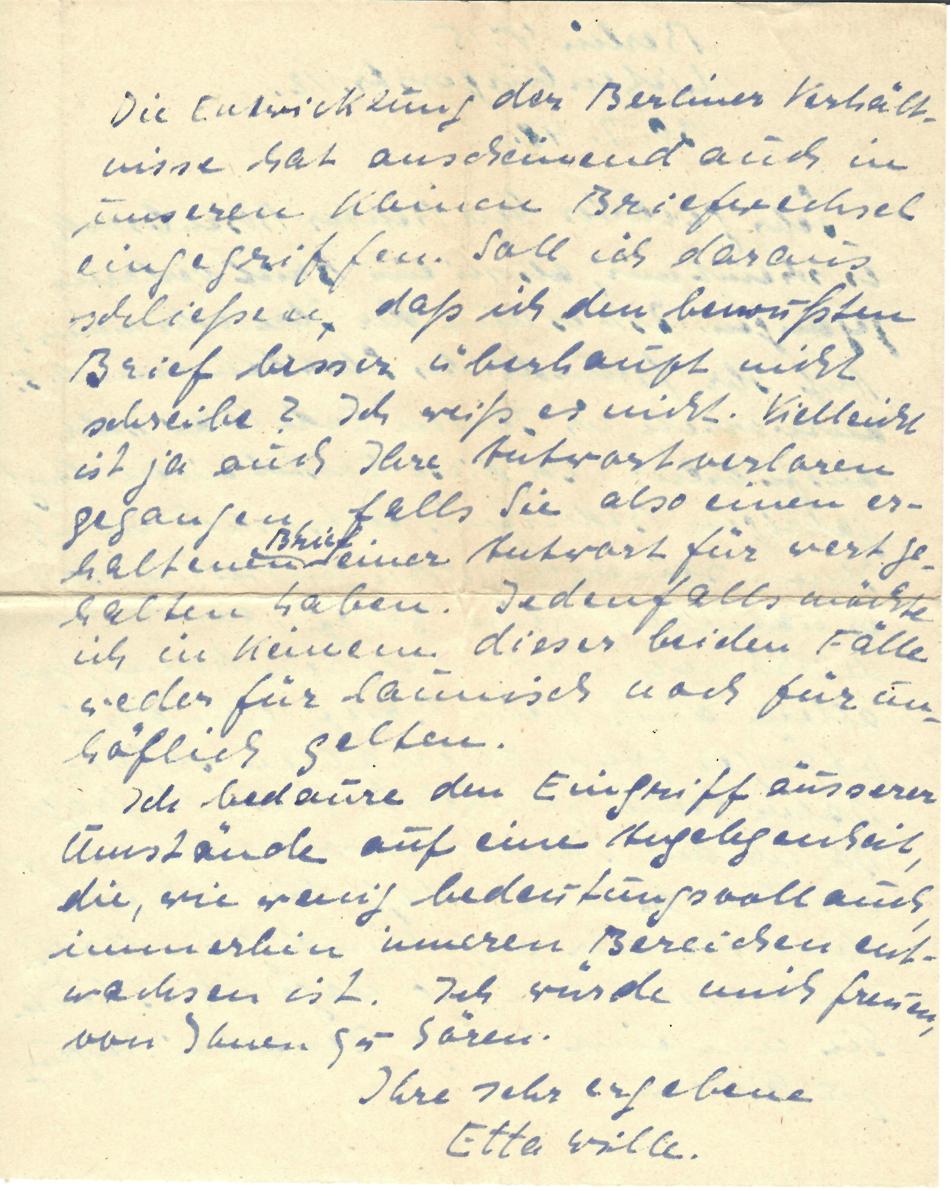 Die Entwicklung der Berliner Verhält-
nisse hat anscheinend auch in
unseren kleinen Briefwechsel
eingegriffen. Soll ich daraus
schließen, daß ich den bewußten
Brief besser überhaupt nicht
schreibe? Ich weiß es nicht. Vielleicht
ist ja auch Ihre Antwort verloren
gegangen, falls Sie also einen er-
haltenen Brief einer Antwort für wert ge-
halten haben. Jedenfalls möchte
ich in keinem dieser beiden Fälle
weder für launisch noch für un-
höflich gelten.
Ich bedaure den Eingriff äusserer
Umstände auf eine Angelegenheit,
die, wie wenig bedeutungsvoll auch,
immerhin inneren Bereichen ent-
wachsen ist. Ich würde mich freuen,
von Ihnen zu hören.
Ihre sehr ergebene
Etta Wille.